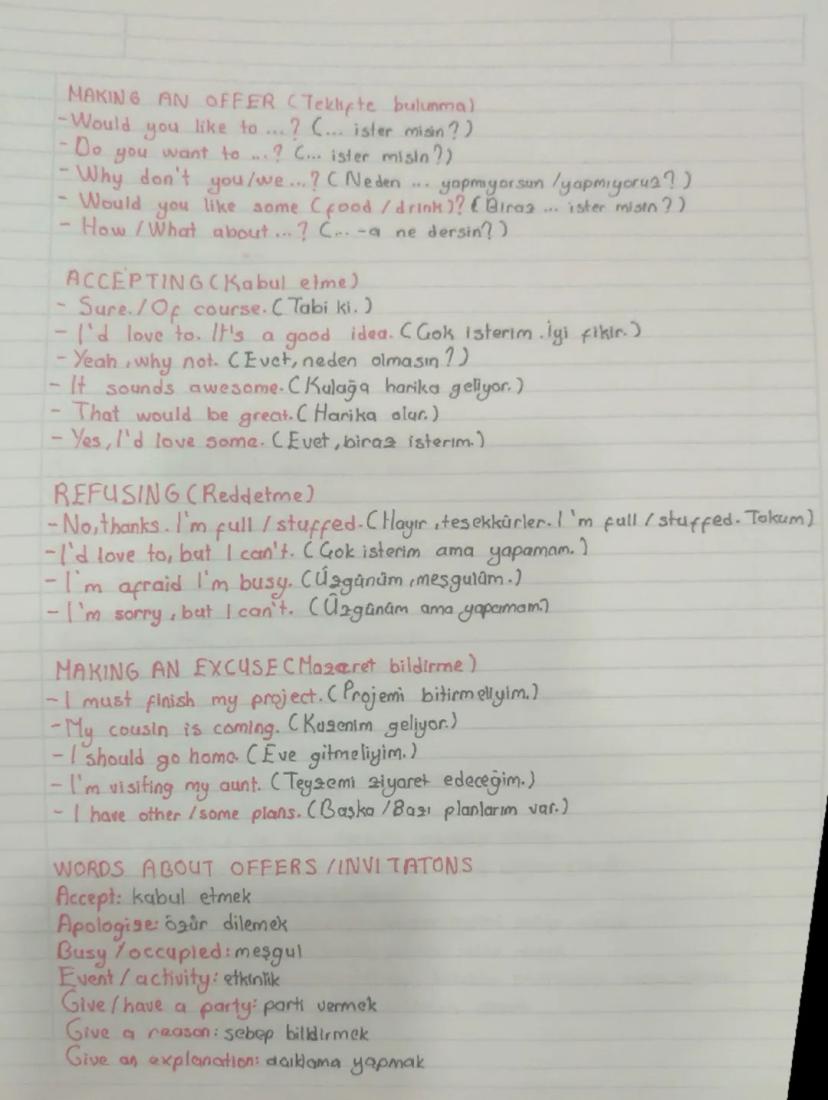 MAKING AN OFFER (Teklifte bulunma)
- Would you like to ...? (... ister misin?)
- Do you want to ...? (... ister misin?)
- Why don't you/we ...? (Neden ... yapmıyorsun /yapmıyoruz?)
- Would you like some (food / drink)? (Biraz ... ister misin?)
- How / What about ...? (... -a ne dersin?)
ACCEPTING (Kabul etme)
- Sure. / Of course. (Tabi ki.)
- I'd love to. It's a good idea. (Çok isterim. İyi fikir.)
- Yeah, why not. (Evet, neden olmasın?)
- It sounds awesome. (Kulağa harika geliyor.)
- That would be great. (Harika olur.)
- Yes, I'd love some. (Evet, biraz isterim.)
REFUSING (Reddetme)
- No, thanks. I'm full / stuffed. (Hayır, teşekkürler. I'm full / stuffed. Tokum)
- I'd love to, but I can't. (Çok isterim ama yapamam.)
- I'm afraid I'm busy. (Üzgünüm, meşgulüm.)
- I'm sorry, but I can't. (Üzgünüm ama yapamam)
MAKING AN EXCUSE (Mazeret bildirme)
- I must finish my project. (Projemi bitirmeliyim.)
- My cousin is coming. (Kuzenim geliyor.)
- I should go home. (Eve gitmeliyim.)
- I'm visiting my aunt. (Teyzemi ziyaret edeceğim.)
- I have other / some plans. (Başka / Bazı planlarım var.)
WORDS ABOUT OFFERS / INVITATONS
Accept: kabul etmek
Apologize: özür dilemek
Busy / occupied: meşgul
Event / activity: etkinlik
Give / have a party: parti vermek
Give a reason: sebep bildirmek
Give an explanation: açıklama yapmak